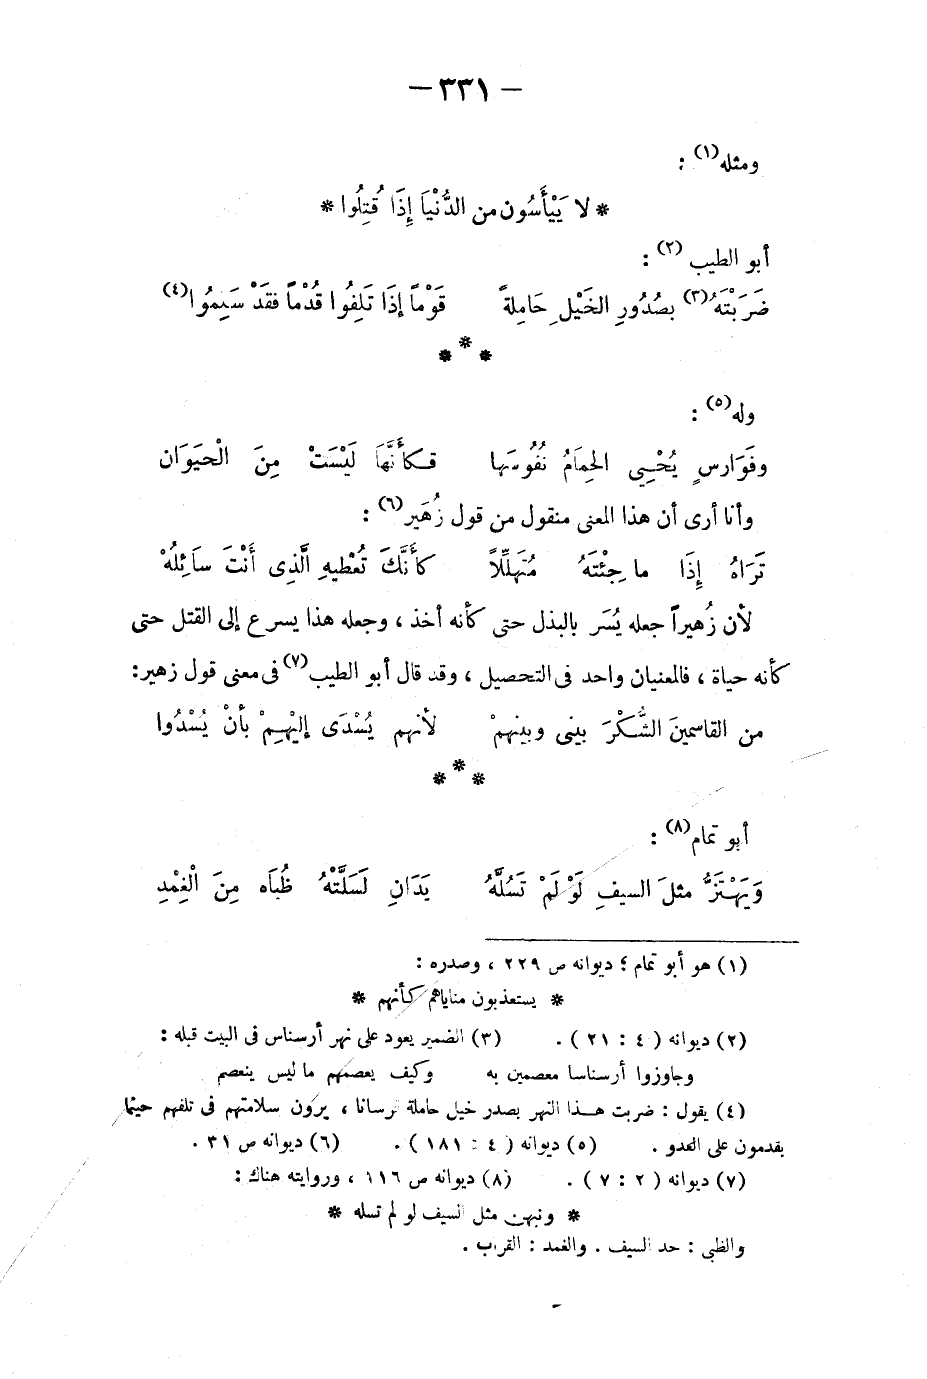 — ٣٣١ —
ومثله(١) :
* لا يَيْأَسُون من الدُّنْيَا إِذَا قُتِلُوا *
أبو الطيب (٢) :
ضَرَبْتَهُ(٣) بصُدُورِ الخَيْلِ حَامِلةً قَوْماً إذَا تَلِفُوا قُدْماً فقَدْ سَلِمُوا(٤)
* * *
وله(٥) :
وفَوَارسٍ يُحْيِي الحِمَامُ نُفُوسَها فكأنَّهَا لَيْسَتْ مِنَ الْحَيَوَان
وأنا أرى أن هذا المعنى منقول من قول زُهَير(٦) :
تَرَاهُ إِذَا ما جِئْتَهُ مُتَهَلِّلاً كأنَّكَ تُعْطيهِ الَّذِى أَنْتَ سَائِلُهْ
لأن زُهيراً جعله يُسَر بالبذل حتى كأنه أخذ ، وجعله هذا يسرع إلى القتل حتى
كأنه حياة ، فالمعنيان واحد فى التحصيل ، وقد قال أبو الطيب(٧) فى معنى قول زهير:
من القاسمينَ الشُّكْرَ بينى وبينهمْ لأنهم يُسْدَى إليْهِمْ بأنْ يُسْدُوا
* * *
أبو تمام(٨) :
وَيَهْتَزُّ مثلَ السيفِ لَوْ لَمْ تَسُلَّهُ يَدَانِ لَسَلَّتْهُ ظُبَاه مِنَ الْغِمْدِ
(١) هو أبو تمام ؛ ديوانه ص ٢٢٩ ، وصدره :
* يستعذبون مناياهم كأنهم *
(٢) ديوانه ( ٤ : ٢١ ) . (٣) الضمير يعود على نهر أرسناس فى البيت قبله :
وجاوزوا أرسناسا معصمين به وكيف يعصمهم ما ليس ينعصم
(٤) يقول : ضربت هذا النهر بصدر خيل حاملة فرسانا ، يرون سلامتهم فى تلفهم حيثما
يقدمون على العدو . (٥) ديوانه ( ٤ : ١٨١ ) . (٦) ديوانه ص ٣١ .
(٧) ديوانه ( ٢ : ٧ ) . (٨) ديوانه ص ١١٦ ، وروايته هناك :
* ونبهن مثل السيف لو لم تسله *
والظبي : حد السيف . والغمد : القراب .